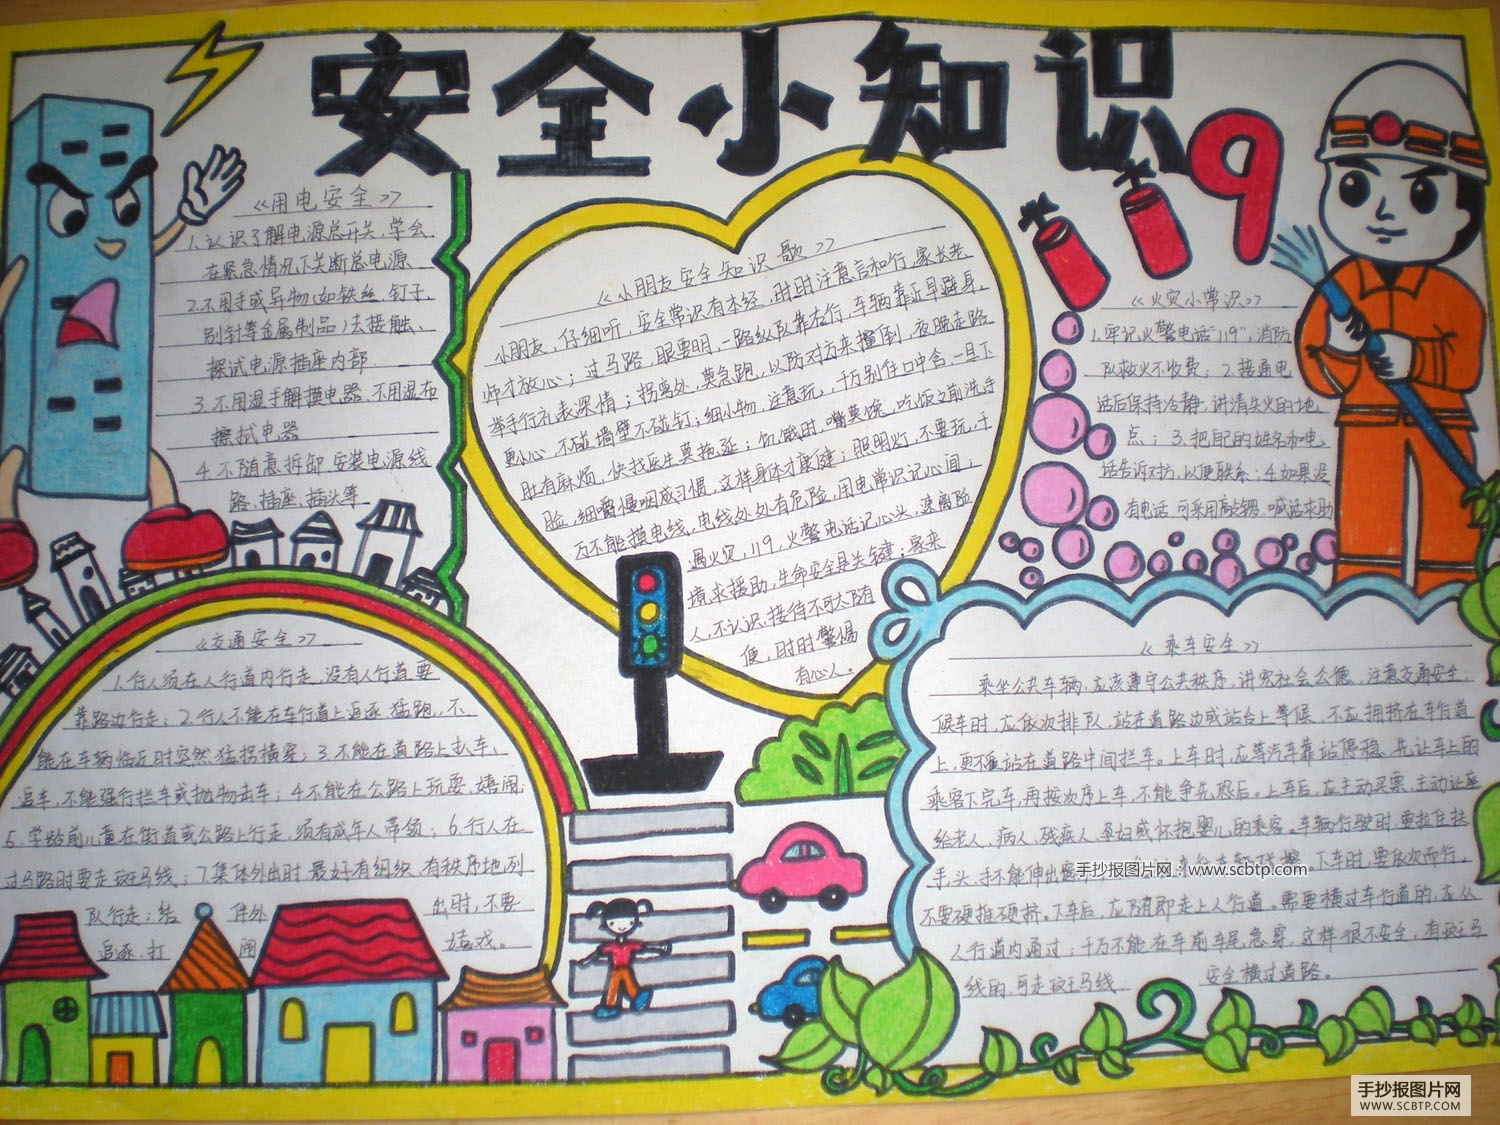 安全小知识
119
《用电安全》
1.认识了解电源总开关,学会
在紧急情况下关断总电源
2.不用手或导物(如铁丝,钉子,
别针等金属制品)去接触、
探试电源插座内部
3.不用湿手解摸电器,不用湿布
擦拭电器
4.不随意拆卸,安装电源线
路,插座,插头等
《小朋友安全知识歌》
小朋友,仔细听,安全常识有本经,时时注意言和行,家长老
师才放心;过马路,眼要明,一路纵队靠右行,车辆靠近早避身,
举手行礼表深情;拐弯处,莫急跑,以防对方来撞倒,夜晚走路
更小心,不碰墙壁不碰钉;细小物,注意玩,千万别往口中含,一旦下
肚有麻烦,快找医生莫拖延;饥饿时,嘴莫馋,吃饭之前洗手
脸,细嚼慢咽成习惯,这样身体才康健;照明灯,不要玩,千
万不能摸电线,电线处处有危险,用电常识记心间;
遇火灾,119,火警电话记心头,速离险
境求援助,生命安全是关键;家来
人,不认识,接待不可太随
便,时时警惕
有心人。
《火灾小常识》
1.牢记火警电话"119",消防
队救火不收费;2.接通电
话后保持冷静,讲清失火的地
点;3.把自己的姓名和电
话告诉对方,以便联系;4.如果没
有电话,可采用敲锣,喊话求助
《交通安全》
1.行人须在人行道内行走,没有人行道要
靠路边行走;2.行人不能在车行道上追逐,猛跑,不
能在车辆临近时突然猛拐横穿;3.不能在道路上扒车、
追车,不能强行拦车或抛物击车;4.不能在公路上玩耍,嬉闹;
5.学龄前儿童在街道或公路上行走,须有成年人带领;6.行人在
过马路时要走斑马线;7.集体外出时,最好有组织,有秩序地列
队行走;结 伴外 出时,不要
追逐,打 闹 嬉戏。
《乘车安全》
乘坐公共车辆,应该遵守公共秩序,讲究社会公德,注意交通安全;
候车时,应依次排队,站在道路边或站台上等候,不应拥挤在车行道
上,更不准站在道路中间拦车。上车时,应等汽车靠站停稳,先让车上的
乘客下完车,再按次序上车,不能争先恐后。上车后,应主动买票,主动让座
给老人,病人,残疾人,孕妇或怀抱婴儿的乘客。车辆行驶时,要拉住扶
手,头,手不能伸出窗 下车时,要依次而行,
不要硬推硬挤。下车后,应随即走上人行道。需要横过车行道的,应从
人行道内通过;千万不能在车前车尾急穿,这样很不安全,有斑马
线的,可走斑马线 安全横过道路。
手抄报图片网:www.scbtp.com
手抄报图片网
WWW.SCBTP.COM